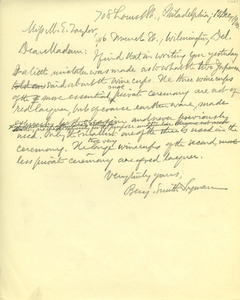 708 Locust St., Philadelphia,
Miss M. E. Taylor,
Wilmington, Del.
Dear Madam: I find that in writing you yesterday
a little mistake was made as to what the two Japan
said about the wine cups. The three wine cups
of the more essential, private ceremony are not of
red lacquer, but of coarse earthen ware, made
and never previously
used. Only the smallest one of the three is used in the
ceremony. The large wine cups of the second,
less private ceremony are of red lacquer.
Very truly yours,
Benj. Smith Lyman.